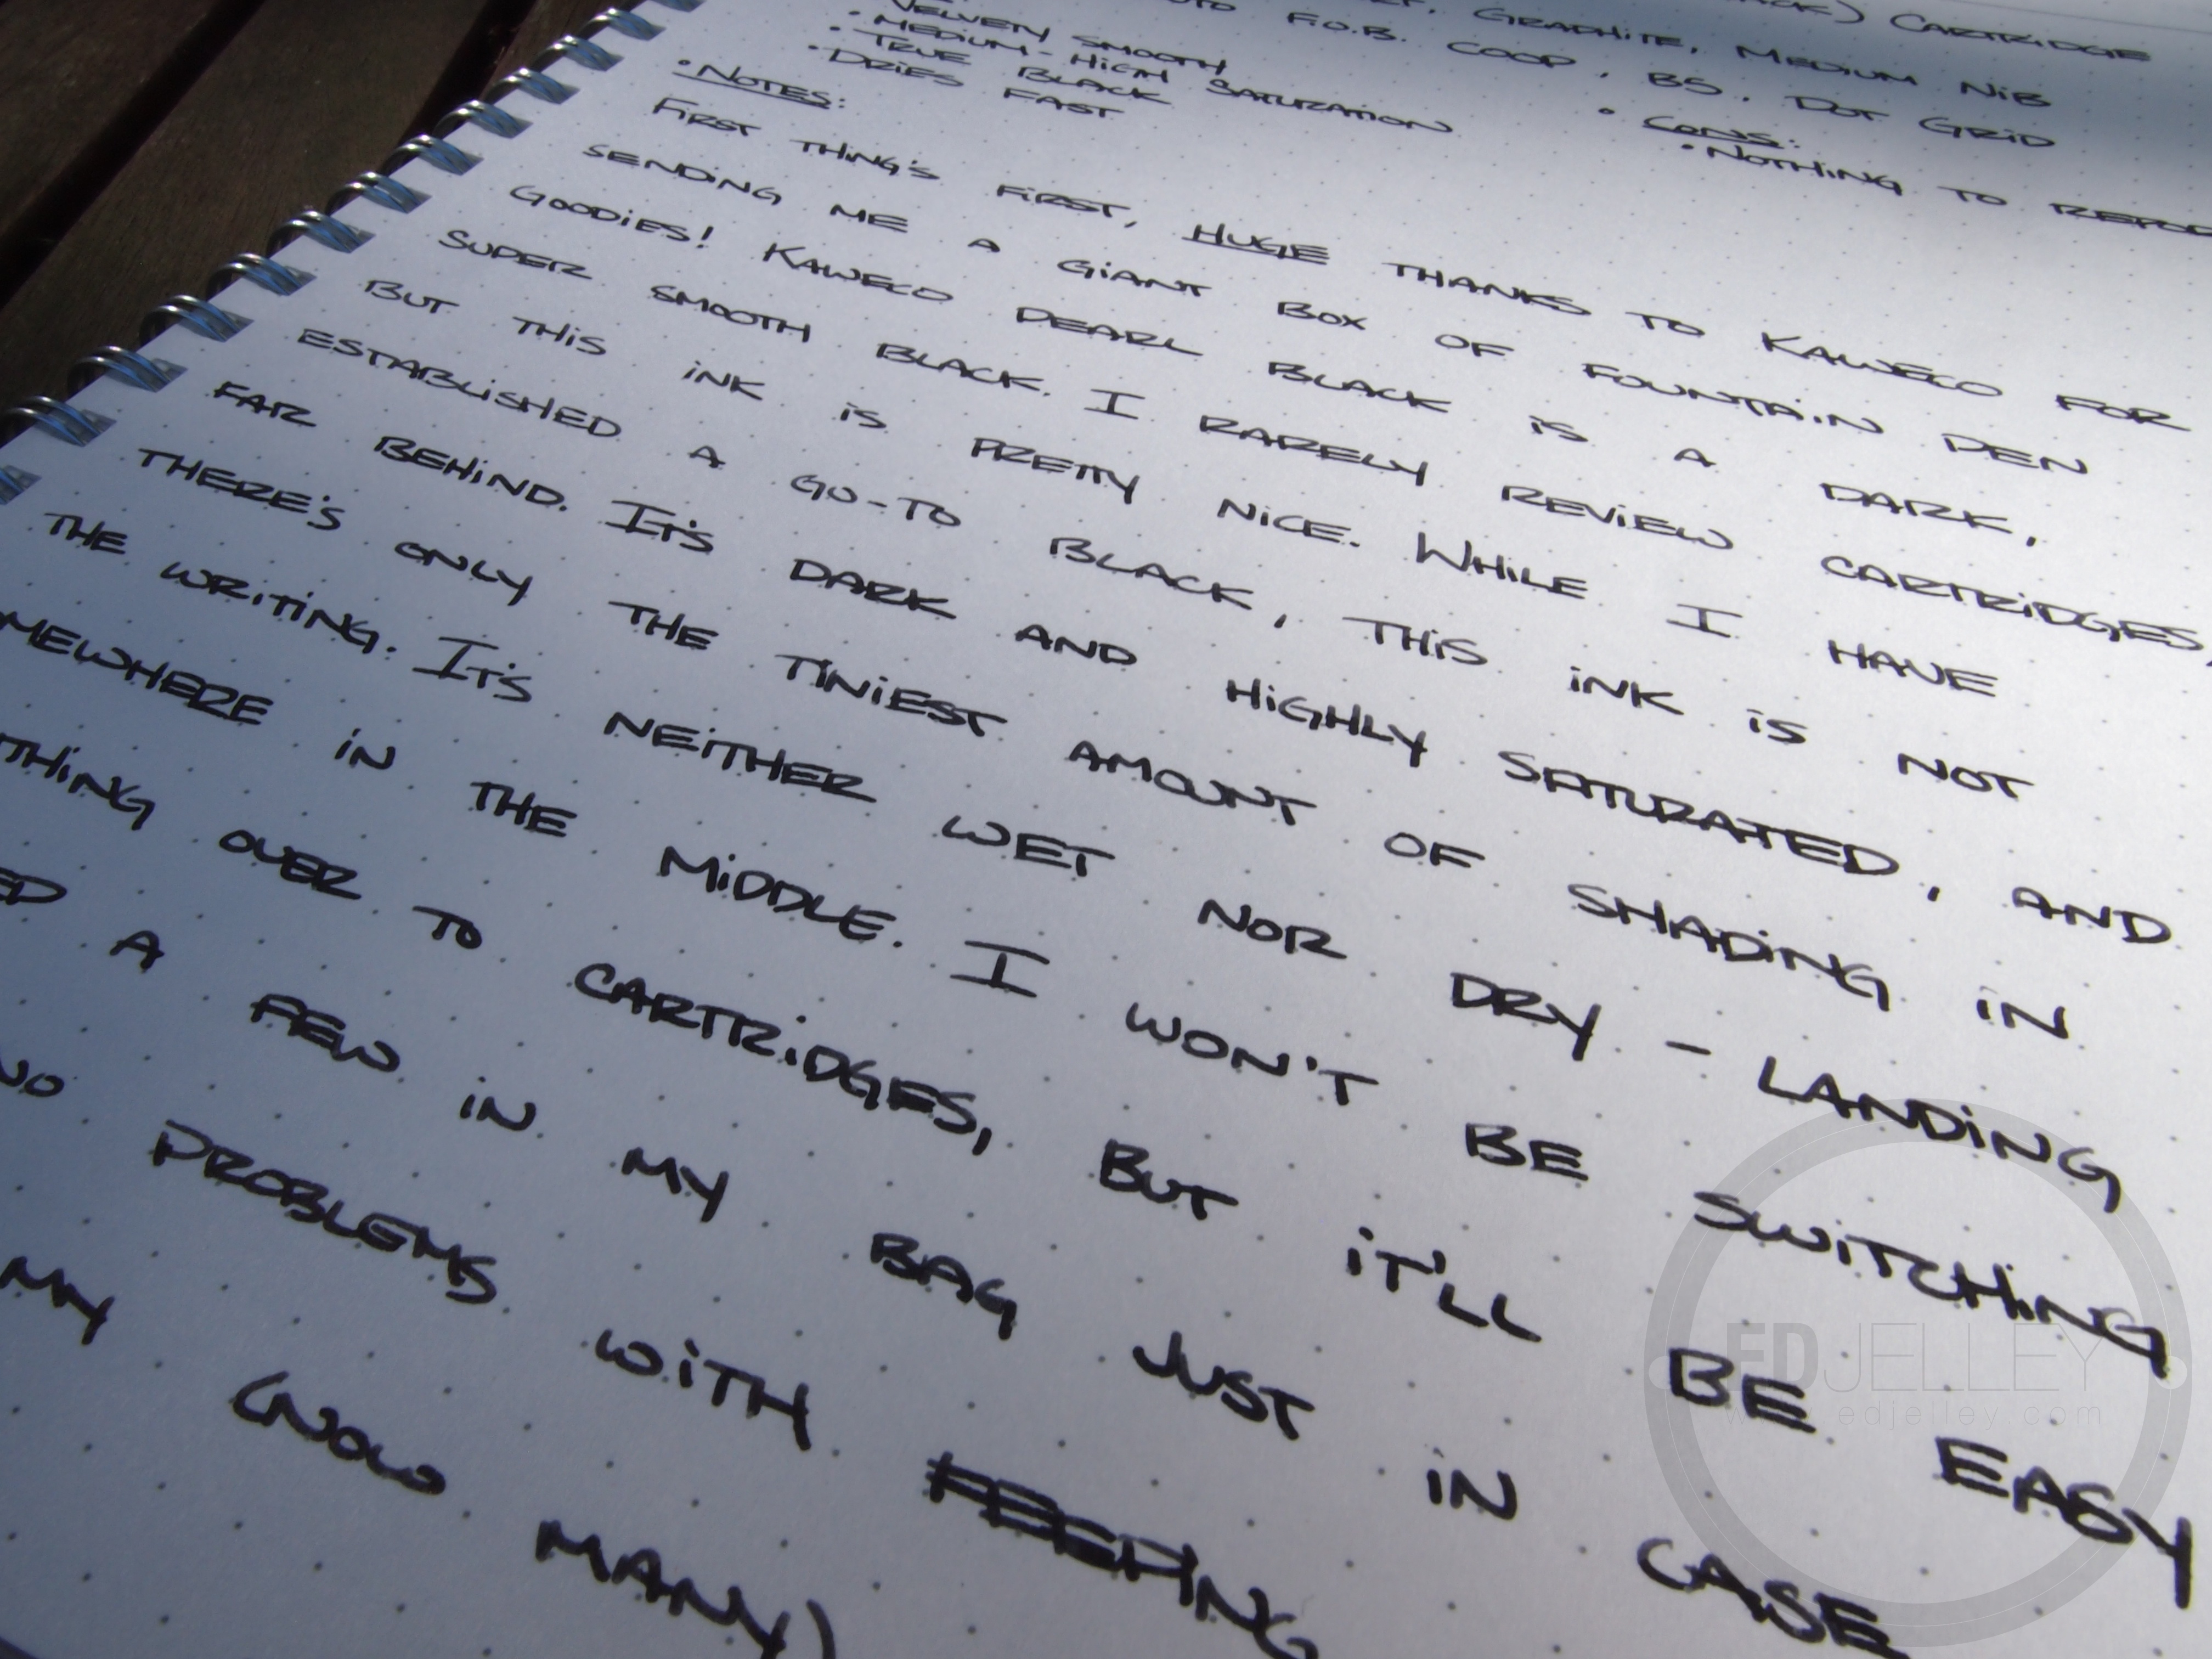 CARTRIDGE
GRAPHITE, MEDIUM NIB
F.O.B. COOP, B5, DOT GRID
• VELVETY SMOOTH
• MEDIUM-HIGH SATURATION
• TRUE BLACK
• DRIES FAST
• CONS:
• NOTHING TO
• NOTES:
FIRST THING'S FIRST, HUGE THANKS TO KAWECO FOR
SENDING ME A GIANT BOX OF FOUNTAIN PEN
GOODIES! KAWECO PEARL BLACK IS A DARK,
SUPER SMOOTH BLACK. I RARELY REVIEW CARTRIDGES,
BUT THIS INK IS PRETTY NICE. WHILE I HAVE
ESTABLISHED A GO-TO BLACK, THIS INK IS NOT
FAR BEHIND. IT'S DARK AND HIGHLY SATURATED, AND
THERE'S ONLY THE TINIEST AMOUNT OF SHADING IN
THE WRITING. IT'S NEITHER WET NOR DRY - LANDING
MEWHERE IN THE MIDDLE. I WON'T BE SWITCHING
THING OVER TO CARTRIDGES, BUT IT'LL BE EASY
ED A FEW IN MY BAG JUST IN CASE
NO PROBLEMS WITH
MY (NOW MANY)
EDJELLEY
www.edjelley.com